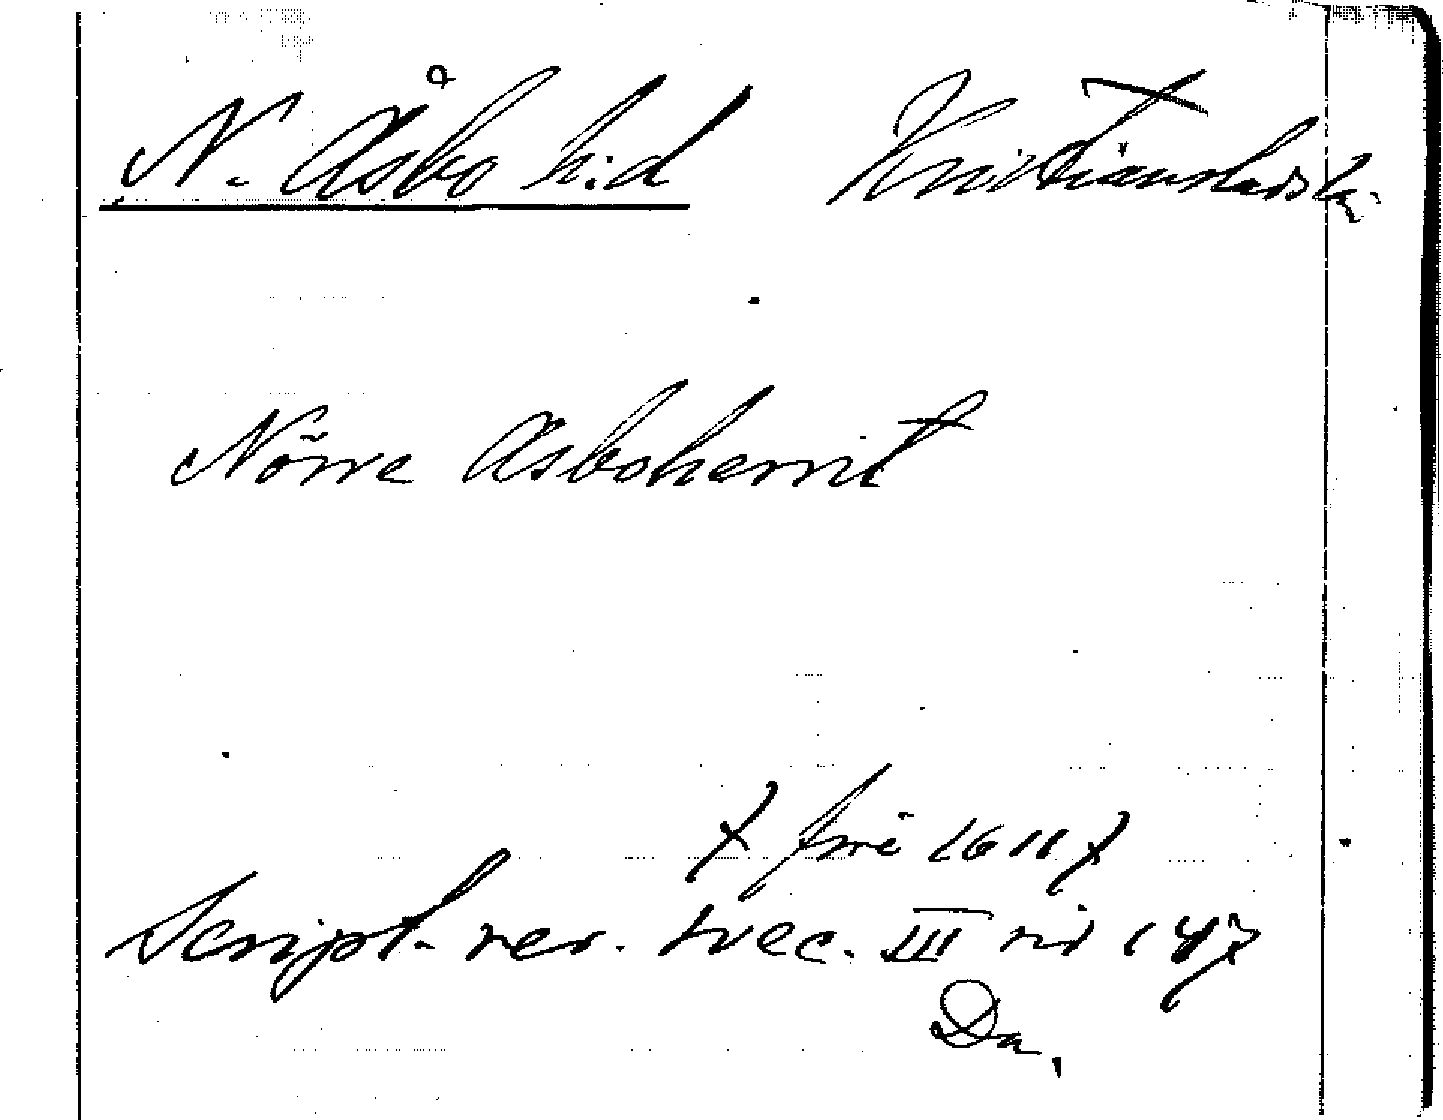 N. Åsbo h:d Kristianstads l.
Nörre Asboherrit
7 före 1611 7
Script. rer. svec. III sid 147
Da,